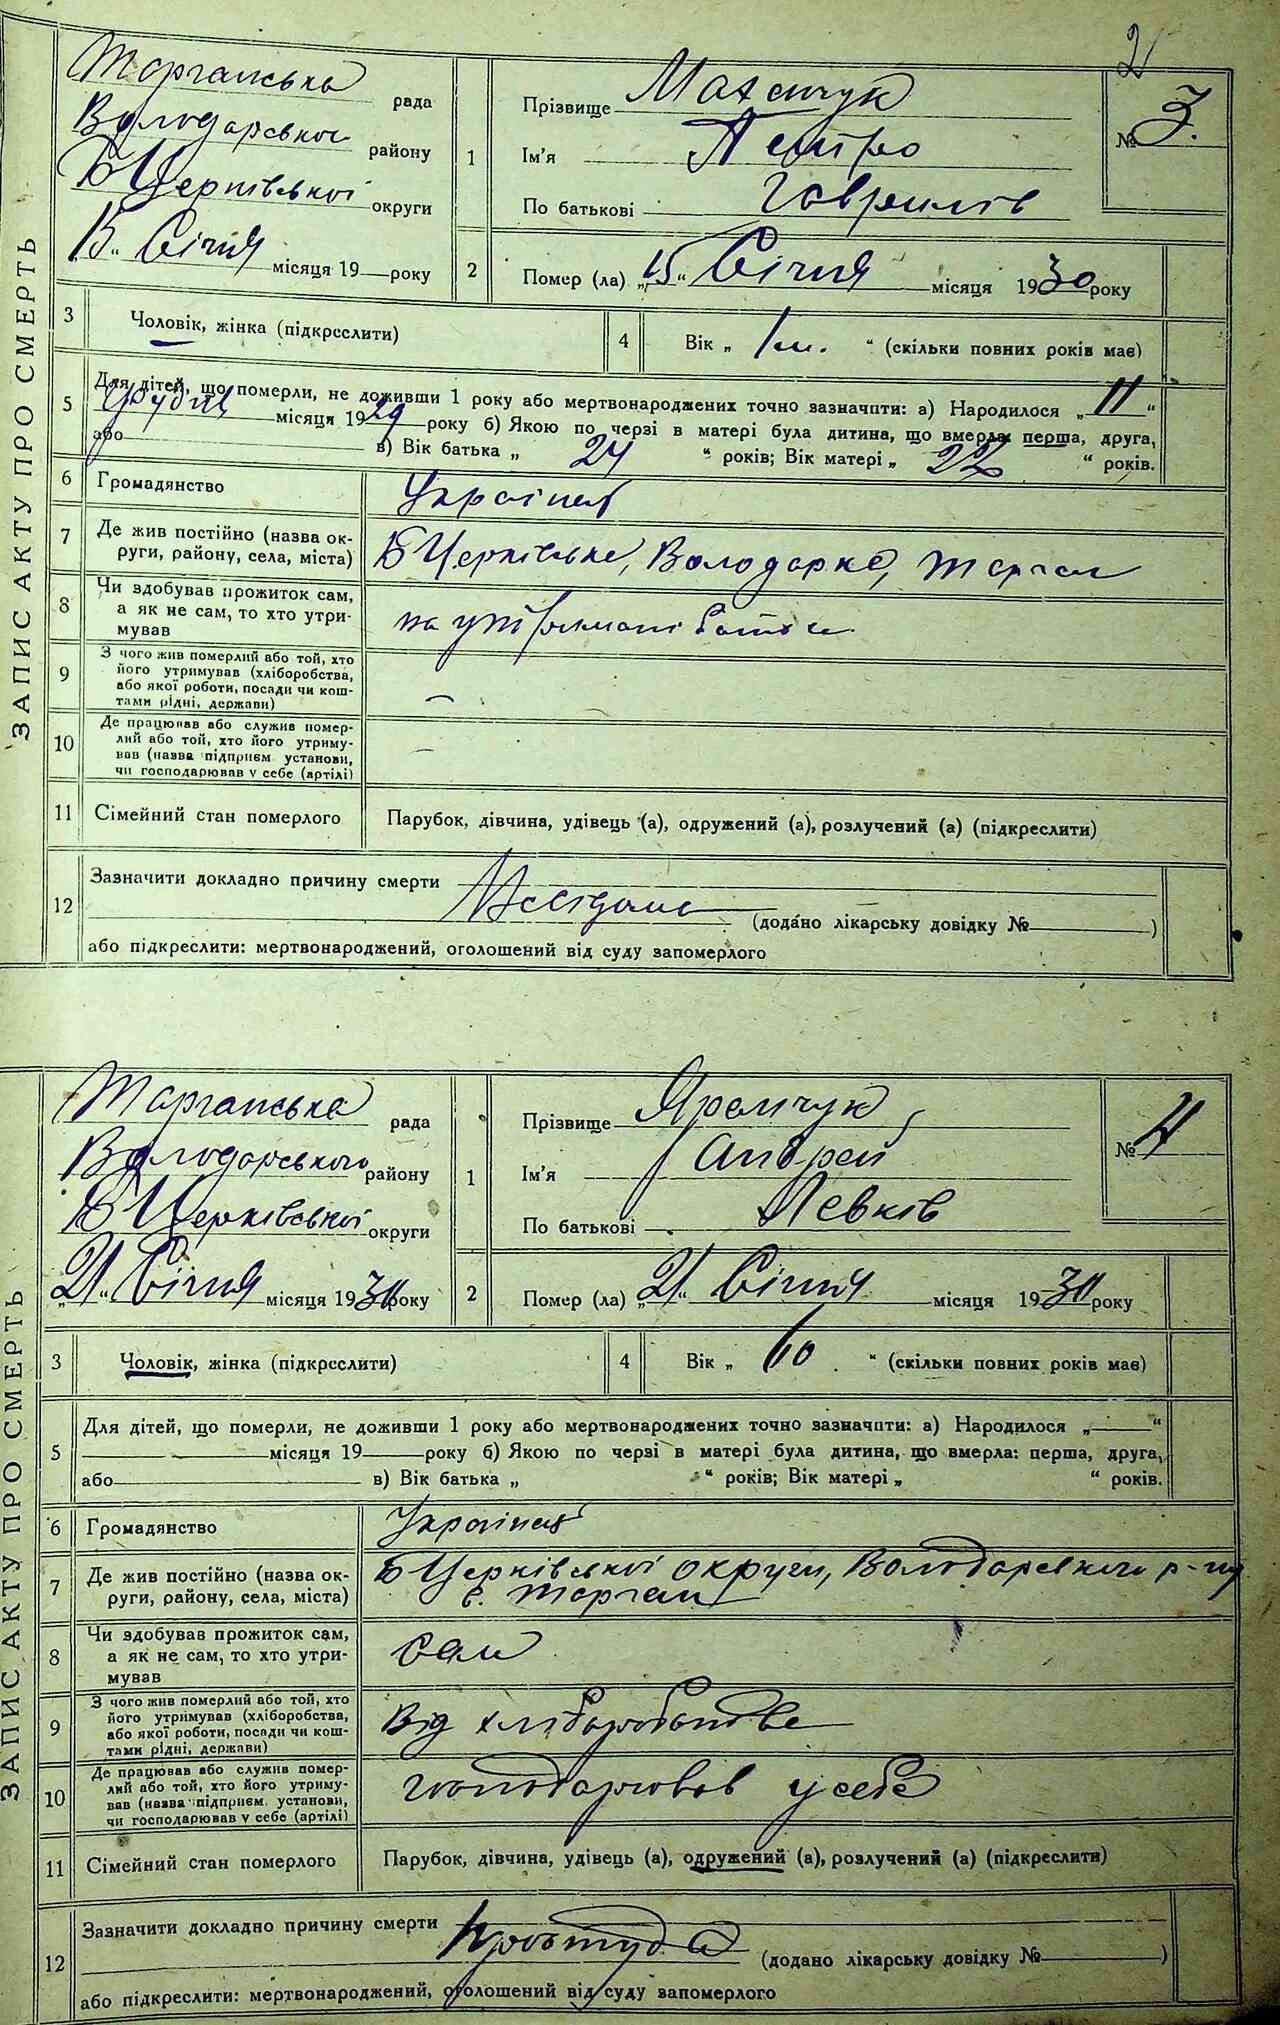 2
ЗАПИС АКТУ ПРО СМЕРТЬ
Торганська рада
Володарського району
БЦерківської округи
15 " Січня місяця 19 року
1
Прізвище
Ім'я Петро
По батькові Гаврилів
№ 3.
2
Помер (ла) „15" Січня місяця 1930 року
3
Чоловік, жінка (підкреслити)
4
Вік „ 1 м. " (скільки повних років має)
5
Для дітей, що померли, не доживши 1 року або мертвонароджених точно зазначити: а) Народилося „11"
Грудня місяця 1929 року б) Якою по черзі в матері була дитина, що вмерла: перша, друга,
або в) Вік батька „ 24 " років; Вік матері „ 22 " років.
6
Громадянство
Українець
7
Де жив постійно (назва ок-
руги, району, села, міста)
БЦерківське, Володарка, Торган
8
Чи здобував прожиток сам,
а як не сам, то хто утри-
мував
на утриманні батька
9
З чого жив померлий або той, хто
його утримував (хліборобства,
або якої роботи, посади чи кош-
тами рідні, держави)
–
10
Де працював або служив помер-
лий або той, хто його утриму-
вав (назва підприєм. установи,
чи господарював у себе (артілі)
–
11
Сімейний стан померлого
Парубок, дівчина, удівець (а), одружений (а), розлучений (а) (підкреслити)
12
Зазначити докладно причину смерти
Невідома (додано лікарську довідку № )
або підкреслити: мертвонароджений, оголошений від суду запомерлого
ЗАПИС АКТУ ПРО СМЕРТЬ
Торганська рада
Володарського району
БЦерківської округи
„21" Січня місяця 1930 року
1
Прізвище Яремчук
Ім'я Андрей
По батькові Левків
№ 4
2
Помер (ла) „21" Січня місяця 1930 року
3
Чоловік, жінка (підкреслити)
4
Вік „ 60 " (скільки повних років має)
5
Для дітей, що померли, не доживши 1 року або мертвонароджених точно зазначити: а) Народилося „ "
місяця 19 року б) Якою по черзі в матері була дитина, що вмерла: перша, друга,
або в) Вік батька „ " років; Вік матері „ " років.
6
Громадянство
Українець
7
Де жив постійно (назва ок-
руги, району, села, міста)
БЦерківської округи, Володарського р-ну
с. Торган
8
Чи здобував прожиток сам,
а як не сам, то хто утри-
мував
сам
9
З чого жив померлий або той, хто
його утримував (хліборобства,
або якої роботи, посади чи кош-
тами рідні, держави)
Від хліборобства
10
Де працював або служив помер-
лий або той, хто його утриму-
вав (назва підприєм. установи,
чи господарював у себе (артілі)
господарював у себе
11
Сімейний стан померлого
Парубок, дівчина, удівець (а), одружений (а), розлучений (а) (підкреслити)
12
Зазначити докладно причину смерти
простуда (додано лікарську довідку № )
або підкреслити: мертвонароджений, оголошений від суду запомерлого